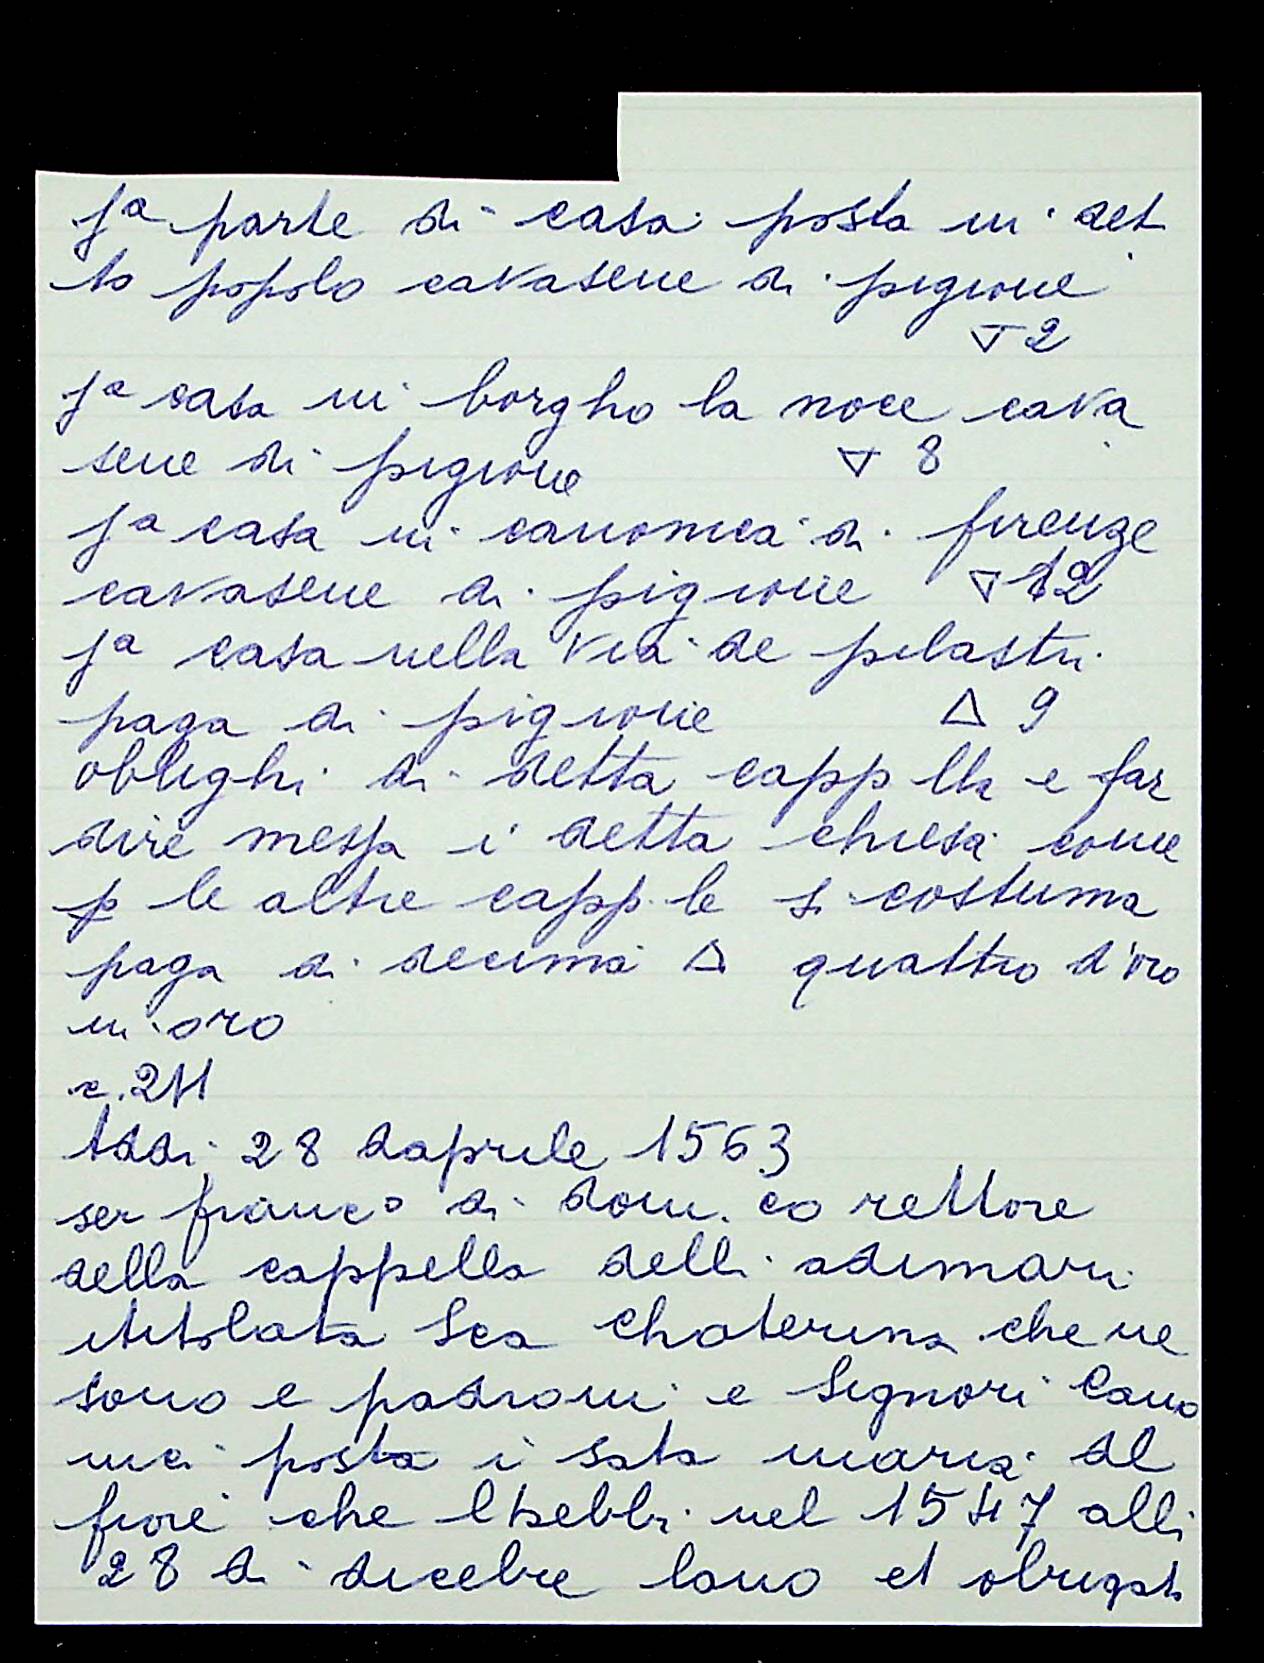 jª parte di casa posta in det
to popolo cavasene di pigione
▽ 2
jª casa in borgho la noce cava
sene di pigione ▽ 8
jª casa in canonica di firenze
cavasene di pigione ▽ 12
jª casa nella via de pilastri
paga di pigione △ 9
oblighi di detta capplla e far
dire messa i detta chiesa come
p le altre capp.le si costuma
paga di decima △ quattro d'oro
in oro
c. 211
Addi 28 daprile 1563
ser franc.º di dom.co rettore
della cappella delli adimari
ititolata Sca chaterina che ne
sono e padroni e Signori Cano
nici posta i sata maria del
fiore che l'hebbi nel 1547 alli
28 di dicebre lano et obrigati